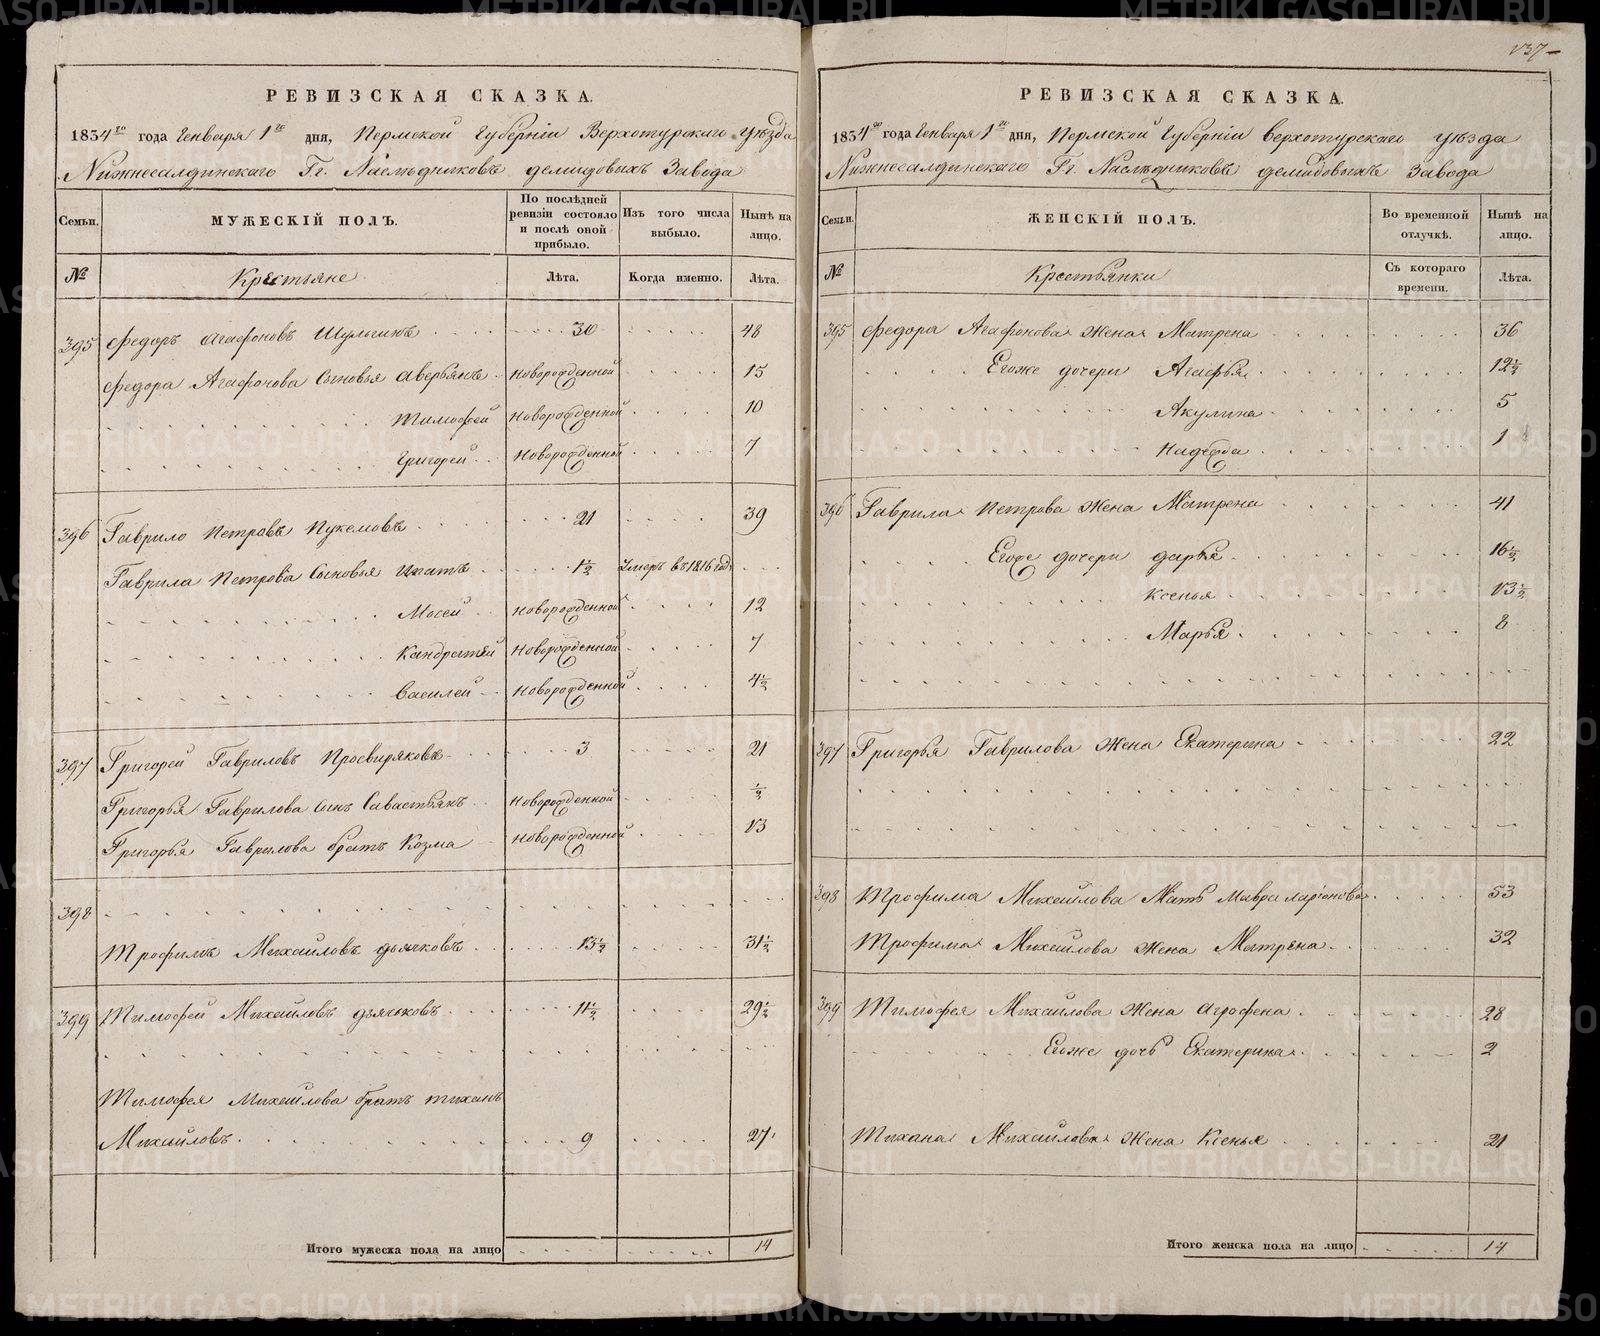 РЕВИЗСКАЯ СКАЗКА.
1834го года Генваря 1го дня, Пермской Губернiи Верхотурскаго уѣзда
Нижнесалдинскаго Гг. Наслѣдниковъ демидовыхъ Завода
Семьи. МУЖЕСКІЙ ПОЛЪ. По послѣдней ревизіи состояло и послѣ оной прибыло. Изъ того числа выбыло. Нынѣ на лицо.
№ Крестьяне Лѣта. Когда именно. Лѣта.
395 Федоръ Агафоновъ Шульгинъ 30 48
Федора Агафонова Сыновья Аверьянъ новорожденной 15
Тимофей новорожденной 10
Григорей новорожденной 7
396 Гаврило Петровъ Пукемовъ 21 39
Гаврила Петрова Сыновья Ипатъ 1/2 Умеръ въ 1816 годѣ
Мосей новорожденной 12
Кандратей новорожденной 7
Василей новорожденной 4 1/2
397 Григорей Гавриловъ Просвиряковъ 3 21
Григорья Гаврилова сынъ Савастьянъ новорожденной 1/2
Григорья Гаврилова братъ Козма новорожденной 13
398
Трофимъ Михайловъ дьячковъ 13 1/2 31 1/2
399 Тимофей Михайловъ дьячковъ 11 1/2 29 1/2
Тимофея Михайлова братъ тиханъ
Михайловъ 9 27
Итого мужеска пола на лицо 14
137
РЕВИЗСКАЯ СКАЗКА.
1834го года Генваря 1го дня, Пермской Губернiи верхотурскаго уѣзда
Нижнесалдинскаго Гг. Наслѣдниковъ демидовыхъ Завода
Семьи. ЖЕНСКІЙ ПОЛЪ. Во временной отлучкѣ. Нынѣ на лицо.
№ Крестьянки Съ котораго времени. Лѣта.
395 Федора Агафонова Жена Матрена 36
Егоже дочери Агафья 12 1/2
Акулина 5
Надежда 1
396 Гаврила Петрова Жена Матрена 41
Егоже дочери дарья 16 1/2
Ксенья 13 1/2
Марья 8
397 Григорья Гаврилова Жена Екатерина 22
398 Трофима Михайлова Мать Мавра ларiонова 53
Трофима Михайлова Жена Матрена 32
399 Тимофея Михайлова Жена Агрофена 28
Егоже дочь Екатерина 2
Тихана Михайлова Жена Ксенья 21
Итого женска пола на лицо 14
METRIKI.GASO-URAL.RU